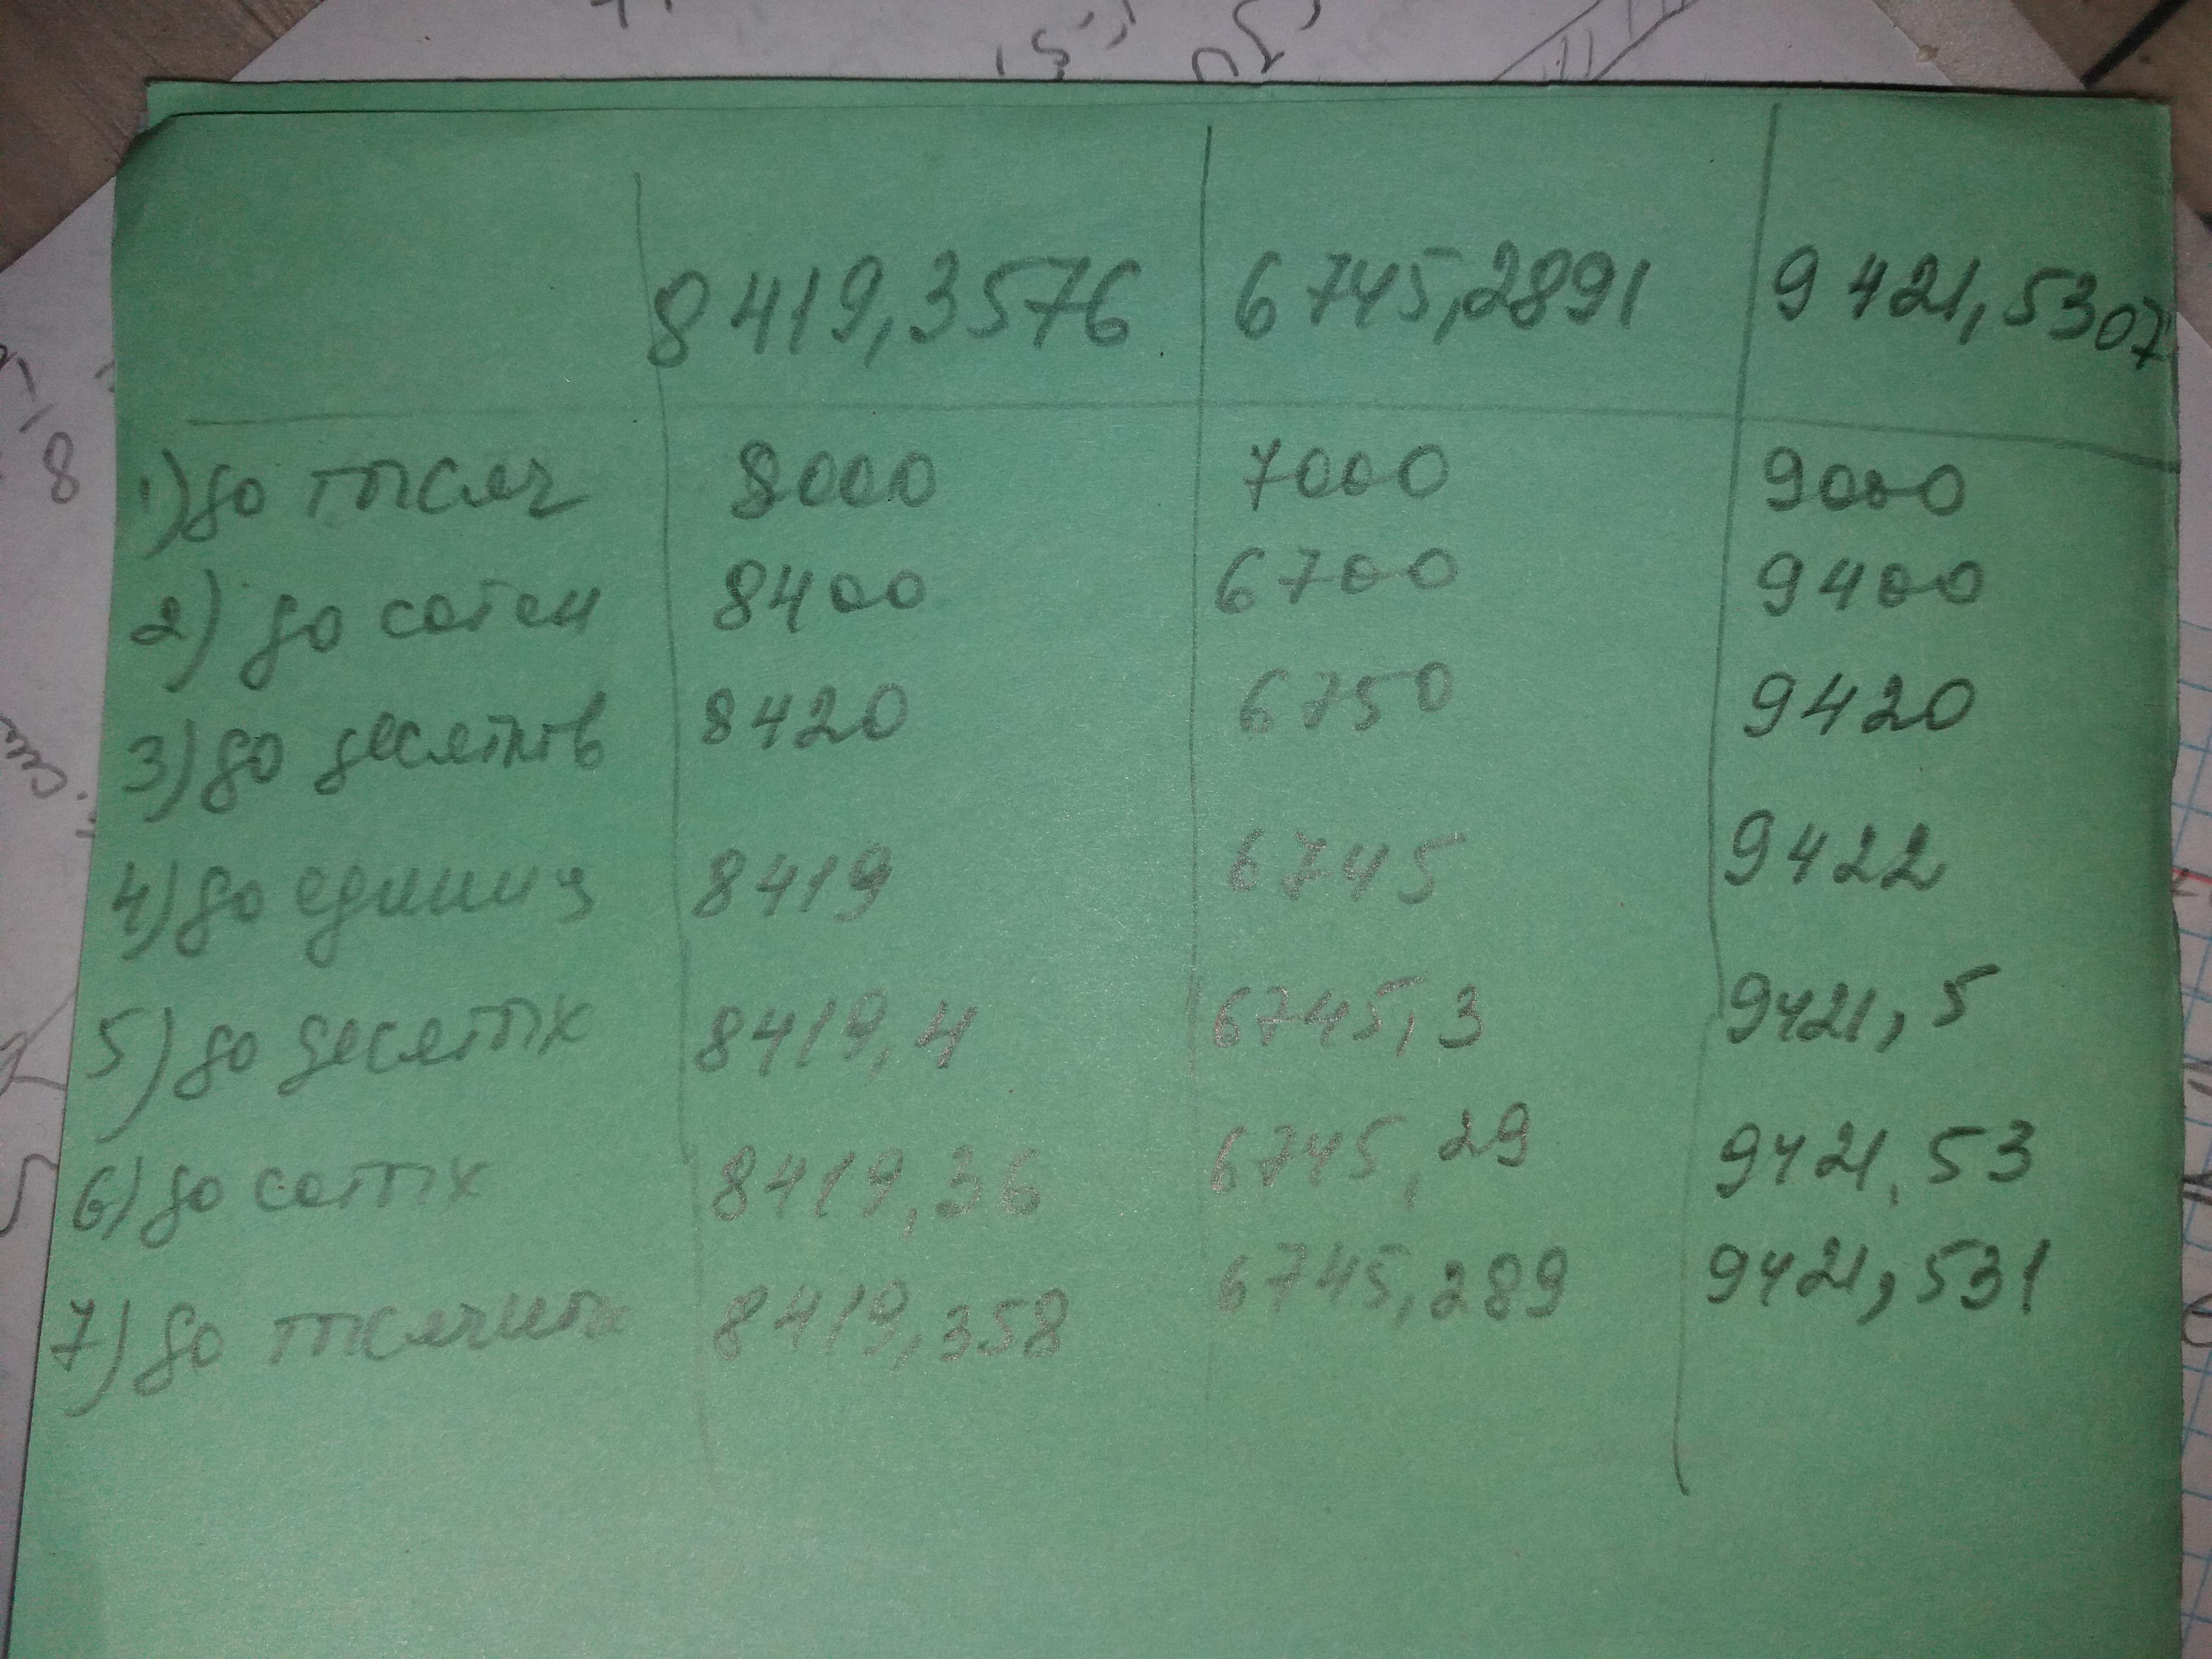 8419,3576 6745,2891 9421,5307
1) до тысяч 8000 7000 9000
2) до сотен 8400 6700 9400
3) до десятков 8420 6750 9420
4) до единиц 8419 6745 9422
5) до десятых 8419,4 6745,3 9421,5
6) до сотых 8419,36 6745,29 9421,53
7) до тысячных 8419,358 6745,289 9421,531